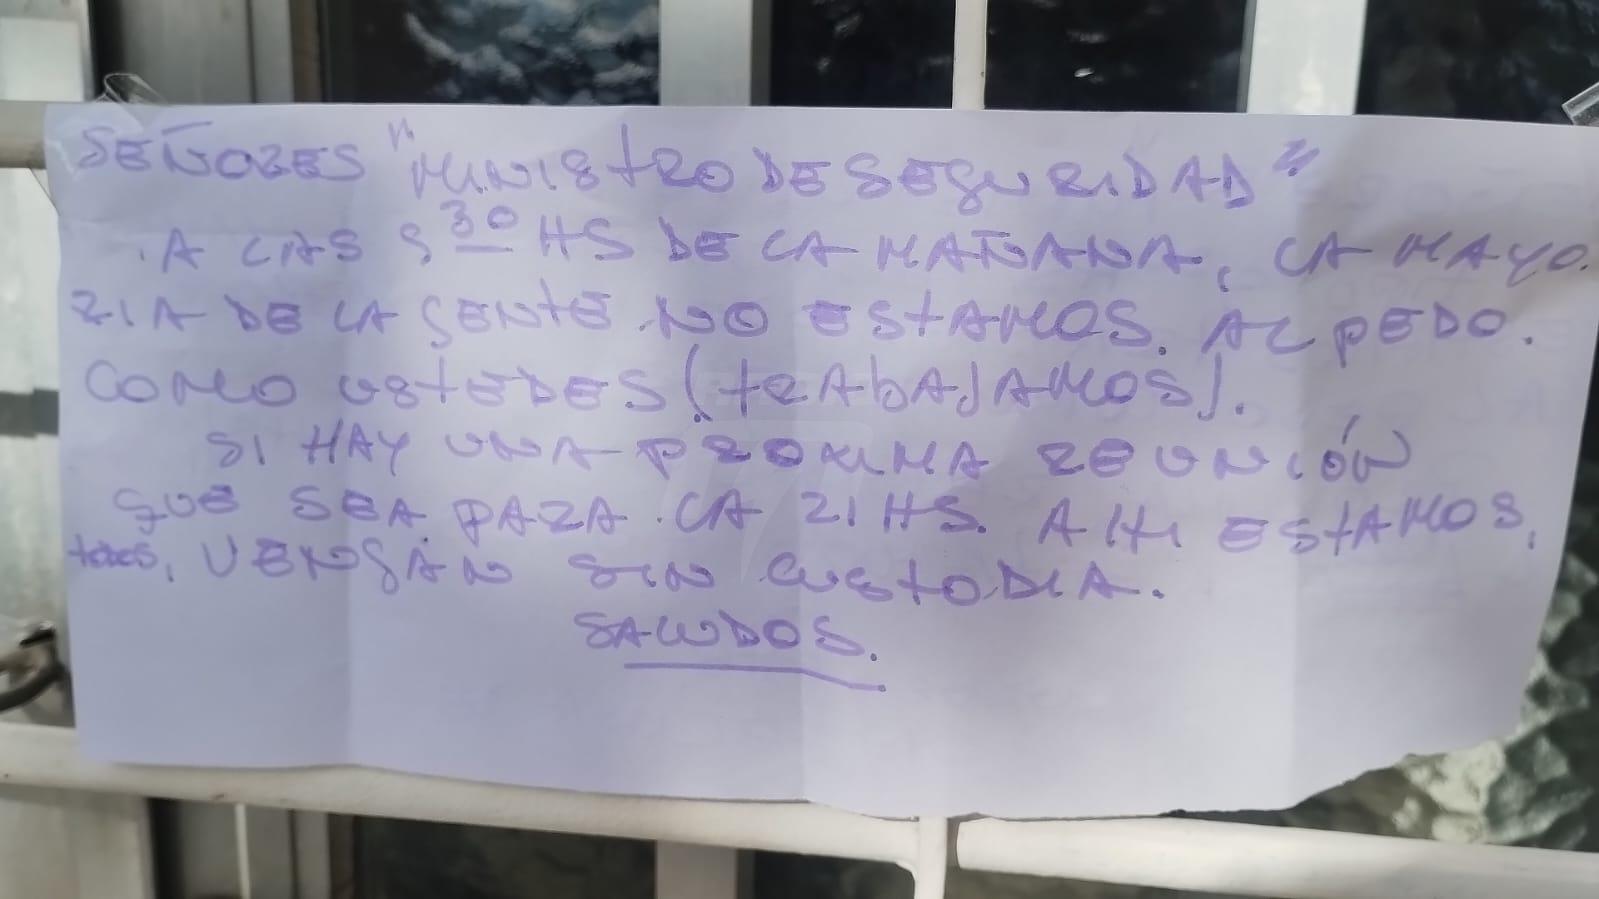 SEÑORES "MINISTRO DE SEGURIDAD"
A LAS 9 30 HS DE LA MAÑANA, LA MAYO.
RIA DE LA GENTE NO ESTAMOS. AL PEDO.
COMO USTEDES (TRABAJAMOS).
SI HAY UNA PROXIMA REUNIÓN
QUE SEA PARA LA 21 HS. AHI ESTAMOS,
todos, VENGAN SIN CUSTODIA.
SALUDOS.